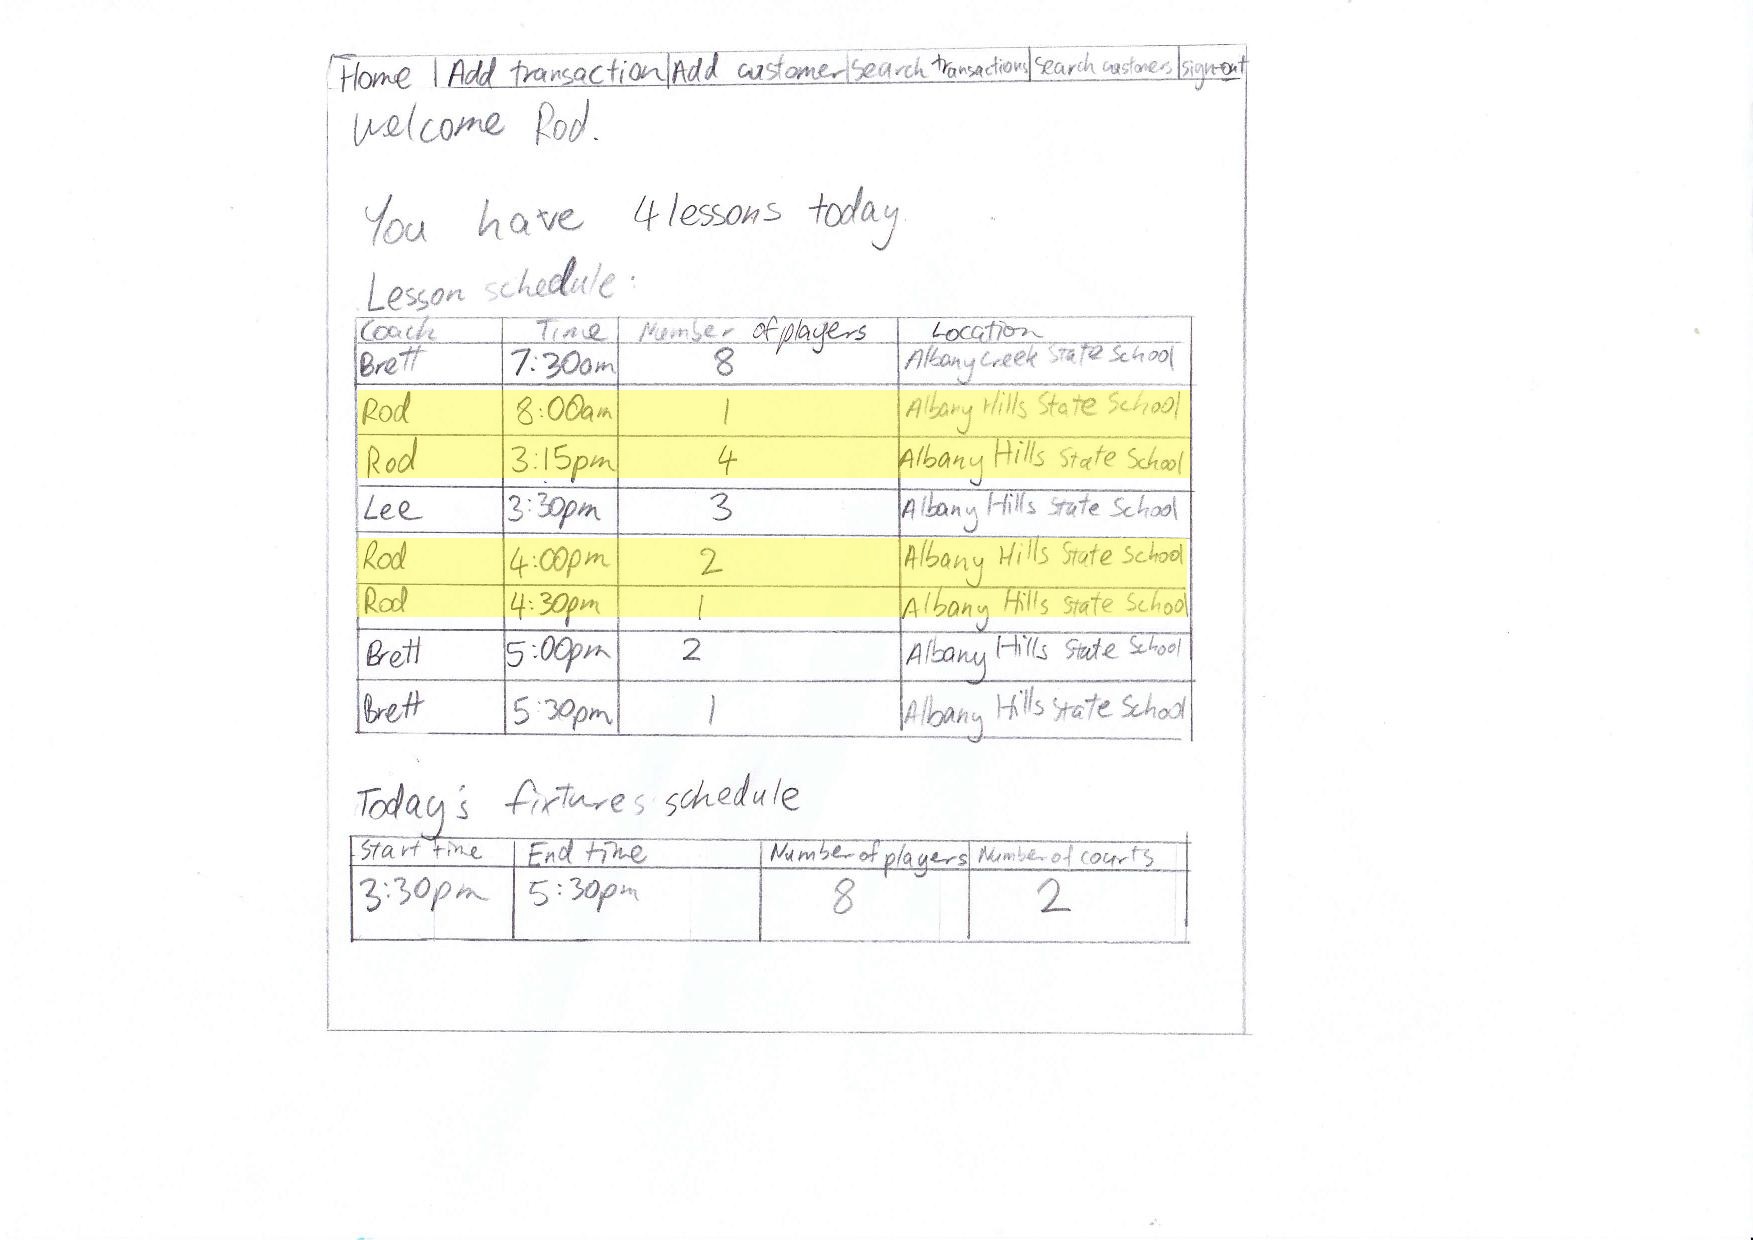 Home | Add transaction | Add customer | Search transactions | Search customers | sign-out
Welcome Rod.
You have 4 lessons today.
Lesson schedule:
Coach Time Number of players Location
Brett 7:30am 8 Albany Creek State School
Rod 8:00am 1 Albany Hills State School
Rod 3:15pm 4 Albany Hills State School
Lee 3:30pm 3 Albany Hills State School
Rod 4:00pm 2 Albany Hills State School
Rod 4:30pm 1 Albany Hills State School
Brett 5:00pm 2 Albany Hills State School
Brett 5:30pm 1 Albany Hills State School
Today's fixtures schedule
Start time End time Number of players Number of courts
3:30pm 5:30pm 8 2